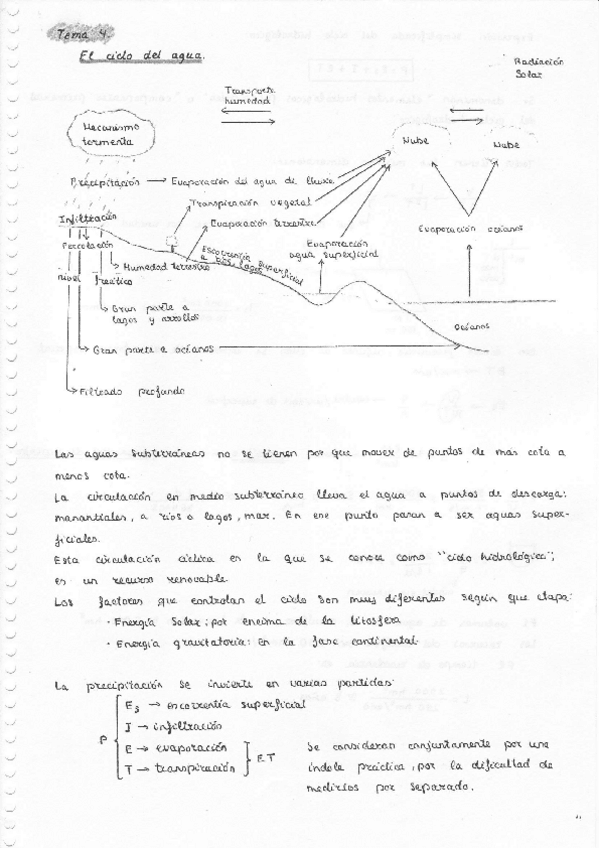 Tema 4
El ciclo del agua.
Radiación
Solar
Transporte
humedad
Mecanismo
tormenta
Nube
Nube
Precipitación → Evaporación del agua de lluvia
Transpiración vegetal
Infiltración
Evaporación terrestre
Evaporación océanos
Percolación
Escorrentía superficial
a ríos, lagos
Evaporación
agua superficial
Humedad terrestre
Nivel freático
Gran parte a
lagos y arrollos
Océanos
Gran parte a océanos
Filtrado profundo
Las aguas subterráneas no se tienen por que mover de puntos de mas cota a
menos cota.
La circulación en medio subterráneo lleva el agua a puntos de descarga:
manantiales, a ríos o lagos, mar. En ese punto pasan a ser aguas super-
ficiales.
Esta circulación cíclica en la que se conoce como "ciclo hidrológico";
es un recurso renovable.
Los factores que controlan el ciclo son muy diferentes según que etapa:
· Energía Solar: por encima de la litosfera
· Energía gravitatoria: En la fase continental
La precipitación se invierte en varias partidas:
P
Es → escorrentía superficial
I → infiltración
E → evaporación
T → transpiración
ET
Se consideran conjuntamente por una
índole práctica, por la dificultad de
medirlos por separado.